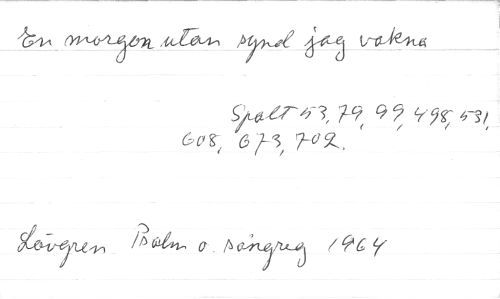 En morgon utan synd jag vakna
Spalt 53, 79, 99, 498, 531,
608, 673, 702.
Lövgren Psalm o. sångreg 1964